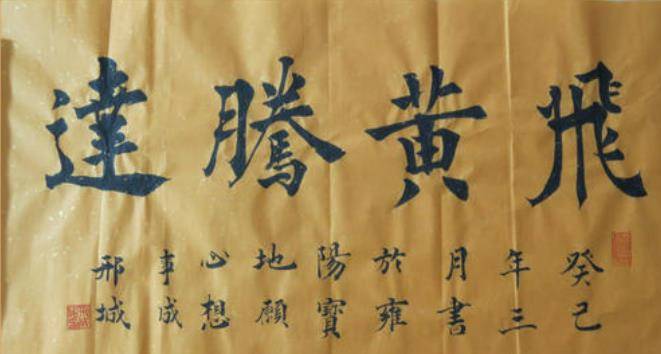 飛黄騰達
癸巳
年三
月書
於雍
陽寶
地願
心想
事成
邢城